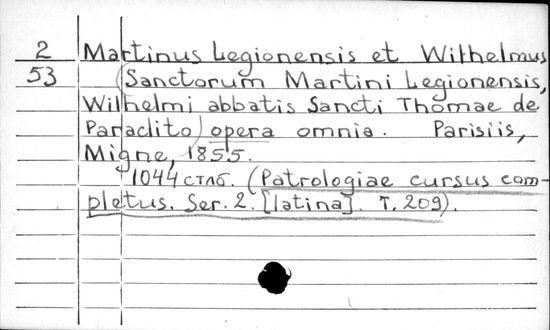 2 Martinus Legionensis et Wilhelmus
53 (Sanctorum Martini Legionensis,
Wilhelmi abbatis Sancti Thomae de
Paraclito) opera omnia. Parisiis,
Migne, 1855.
1044 стлб. (Patrologiae cursus com-
pletus. Ser. 2. [latina]. T. 209).